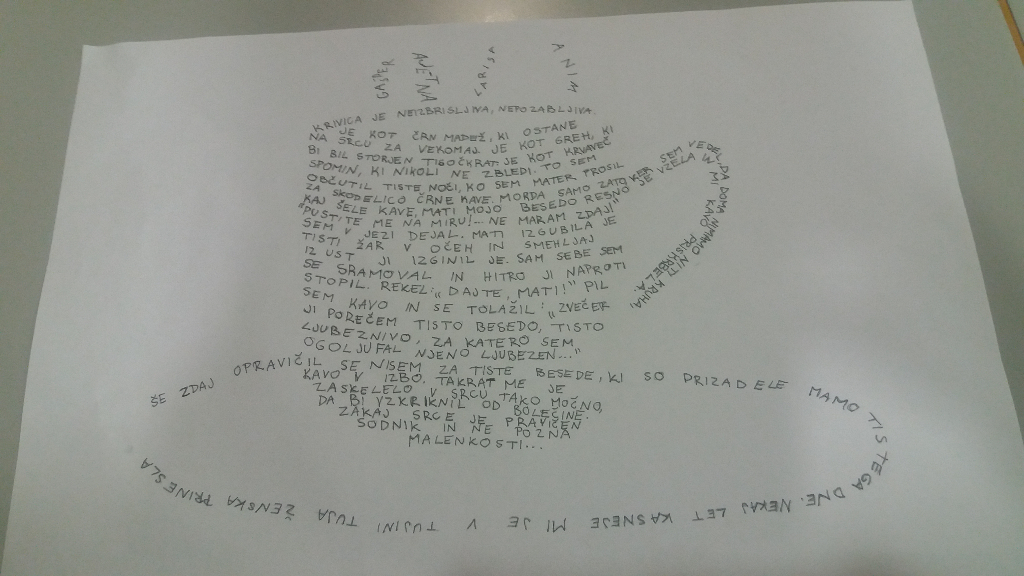 GAŠPER
ANETNA
LARISA
ANIM
KRIVICA JE NEIZBRISLJIVA, NEPOZABLJIVA.
JE KOT ČRN MADEŽ, KI OSTANE
NA SRCU ZA VEKOMAJ. JE KOT GREH, KI
BI BIL STORJEN TISOČKRAT. JE KOT KRVAVEČ
SPOMIN, KI NIKOLI NE ZBLEDI. TO SEM
OBČUTIL TISTE NOČI, KO SEM MATER PROSIL
ZA SKODELICO ČRNE KAVE. MORDA SAMO ZATO KER SEM VEDEL, DA DOMA NIMAMO NITI KRUHA
KAJ ŠELE KAVE, MATI MOJO BESEDO RESNO JE VZELA IN MI KAVO PRISKRBELA.
"PUSTITE ME NA MIRU! – NE MARAM ZDAJ!"
SEM V JEZI DEJAL. MATI IZGUBILA JE
TISTI ŽAR V OČEH IN SMEHLJAJ
IZ UST JI IZGINIL JE. SAM SEBE SEM
SE SRAMOVAL IN HITRO JI NAPROTI
STOPIL. REKEL: „DAJTE, MATI!" PIL
SEM KAVO IN SE TOLAŽIL: „ZVEČER
JI POREČEM TISTO BESEDO, TISTO
LJUBEZNIVO, ZA KATERO SEM
OGOLJUFAL NJENO LJUBEZEN..."
ŠE ZDAJ OPRAVIČIL SE NISEM ZA TISTE BESEDE, KI SO PRIZADELE MAMO TISTEGA DNE. NEKAJ LET KASNEJE MI JE V TUJINI TUJA ŽENSKA PRINESLA
KAVO V IZBO. TAKRAT ME JE
ZASKELELO V SRCU TAKO MOČNO,
DA BI VZKRIKNIL OD BOLEČINE.
ZAKAJ SRCE JE PRAVIČEN
SODNIK IN NE POZNA
MALENKOSTI...